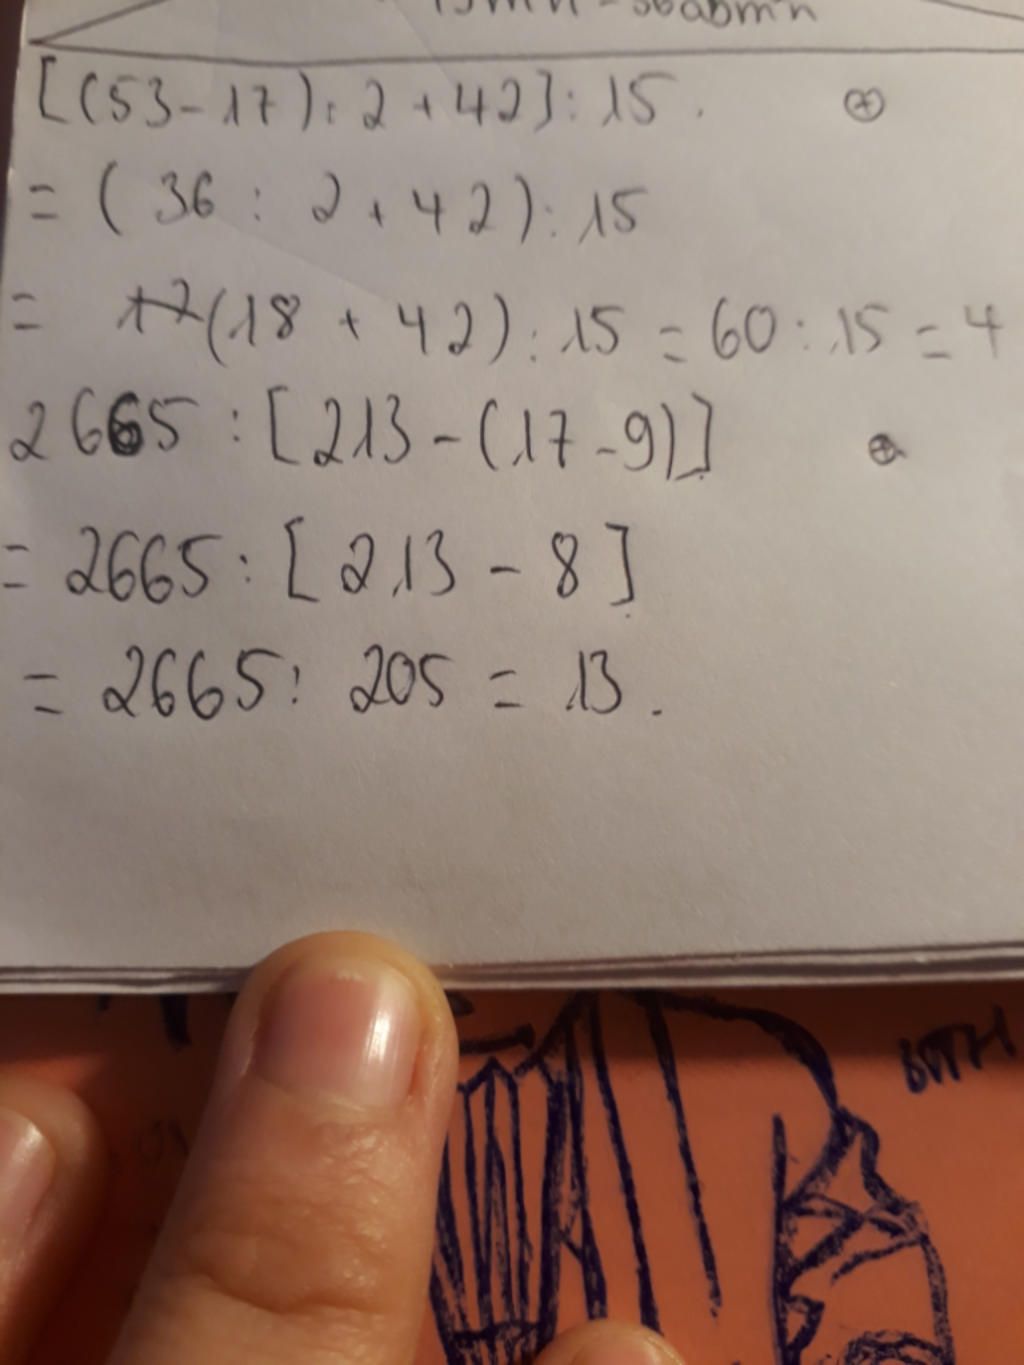 [(53-17):2+42]:15. ⊕
= (36 : 2 + 42):15
= (18 + 42):15 = 60:15 = 4
2665 : [213-(17-9)] ⊕
= 2665 : [213 - 8]
= 2665: 205 = 13.